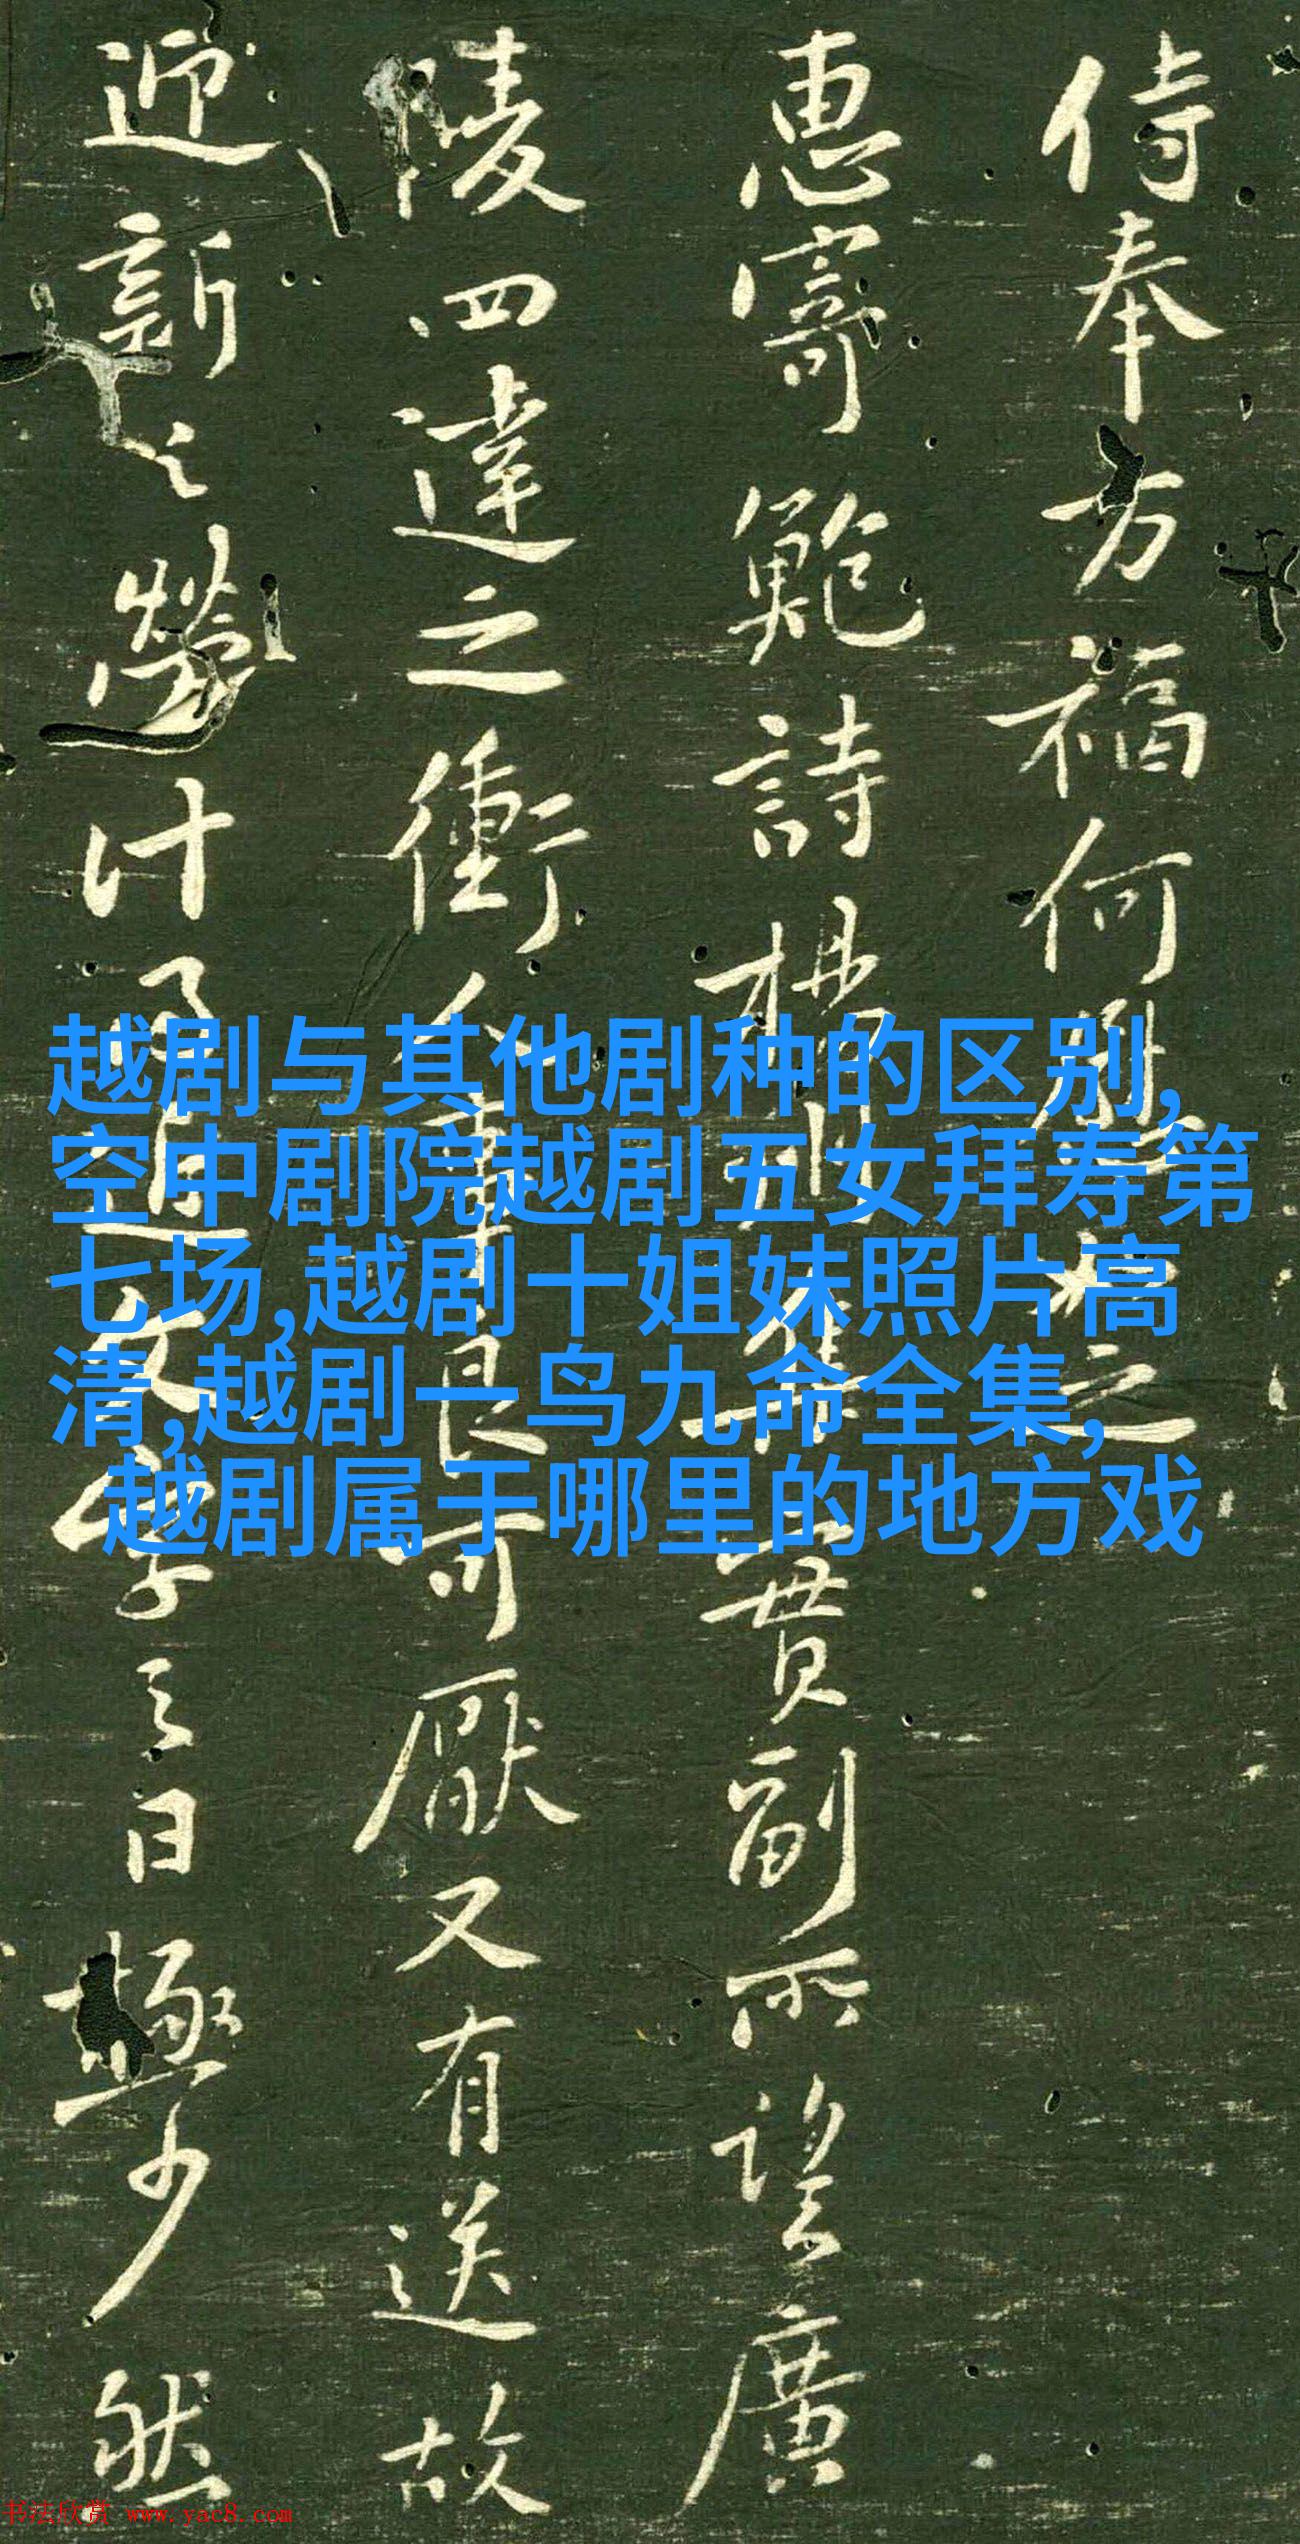 侍奉方福何
之
惠寄鲍詩
貫副所望廣
陵四達之衝
可厭又有送故
迎新之勞計
日極少然
越剧与其他剧种的区别,
空中剧院越剧五女拜寿第
七场,越剧十姐妹照片高
清,越剧一鸟九命全集,
越剧属于哪里的地方戏
书法欣赏 www.yac8.com